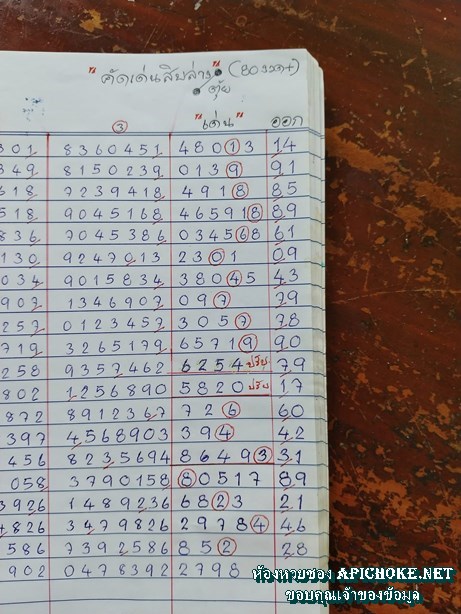 "คัดเด่นสิบล่าง" (80 งวด+)
ตุ้ย
③ "เด่น" ออก
301 8360451 48013 14
349 8150239 0139 91
618 7239418 4918 85
518 9045168 465918 89
836 7045386 034568 61
130 9247013 2301 09
034 9015834 38045 43
907 1346907 097 79
257 0123457 3057 78
719 3265179 65719 90
258 9357462 6254 ปรับ 79
802 1256890 5820 ปรับ 17
872 8912367 726 60
397 4568903 394 42
456 8235694 86493 31
058 3790158 80517 89
3926 1489236 6823 21
4826 3479826 29784 46
586 7392586 852 28
902 0478392 2798
ห้องหวยซอง APICHOKE.NET
ขอบคุณเจ้าของข้อมูล